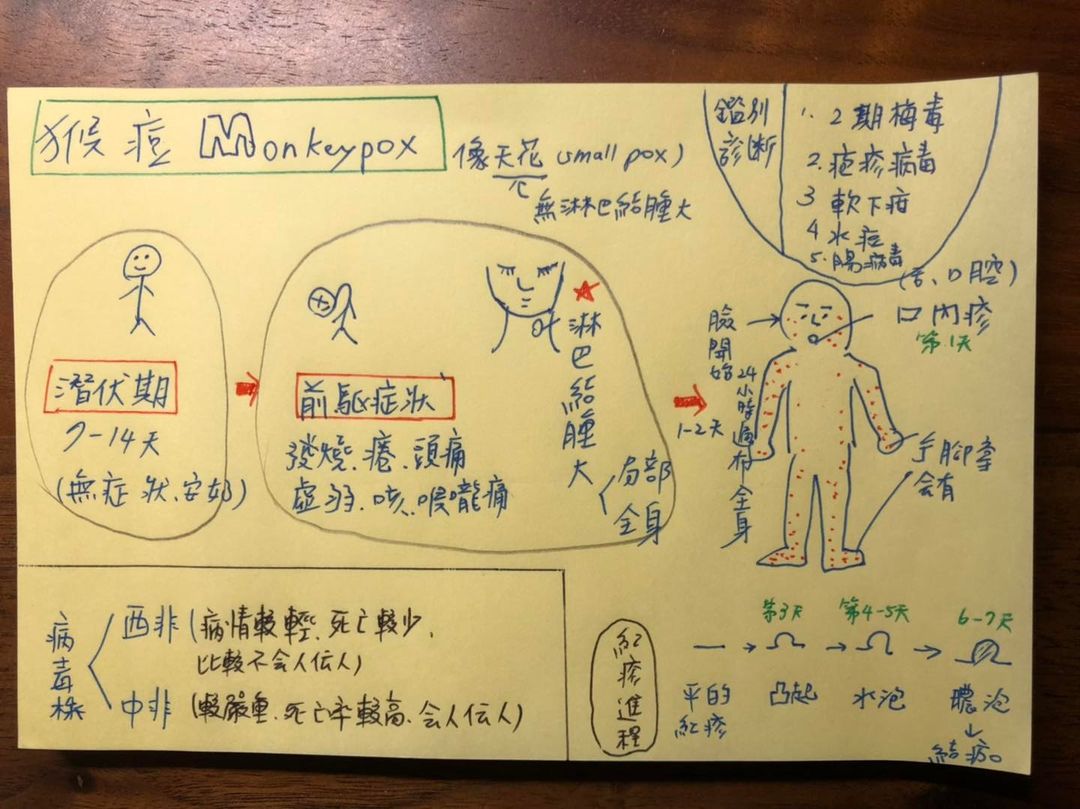 猴痘 Monkeypox
像天花 (small pox)
無淋巴結腫大
鑑別
診断
1. 2期梅毒
2. 疱疹病毒
3 軟下疳
4 水痘
5. 腸病毒
潛伏期
7-14天
(無症狀、安好)
前驅症狀
發燒、倦、頭痛
虛弱、咳、喉嚨痛
淋巴結腫大
局部
全身
1-2天
臉開始
24小時遍布全身
(舌、口腔)
口內疹
第1天
手腳掌
会有
病毒株
西非 (病情較輕、死亡較少、
比較不会人伝人)
中非 (較嚴重、死亡率較高、会人伝人)
紅疹進程
第3天
第4-5天
6-7天
平的
紅疹
凸起
水泡
膿泡
結痂